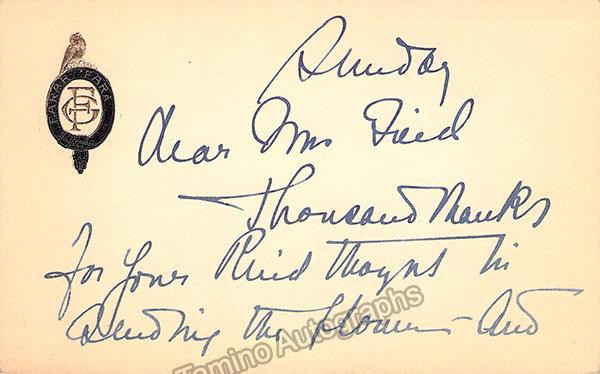 FARAR FARA
Sunday
dear Mrs Field
Thousand thanks
for your kind thought in
sending the flowers – and
Tamino Autographs